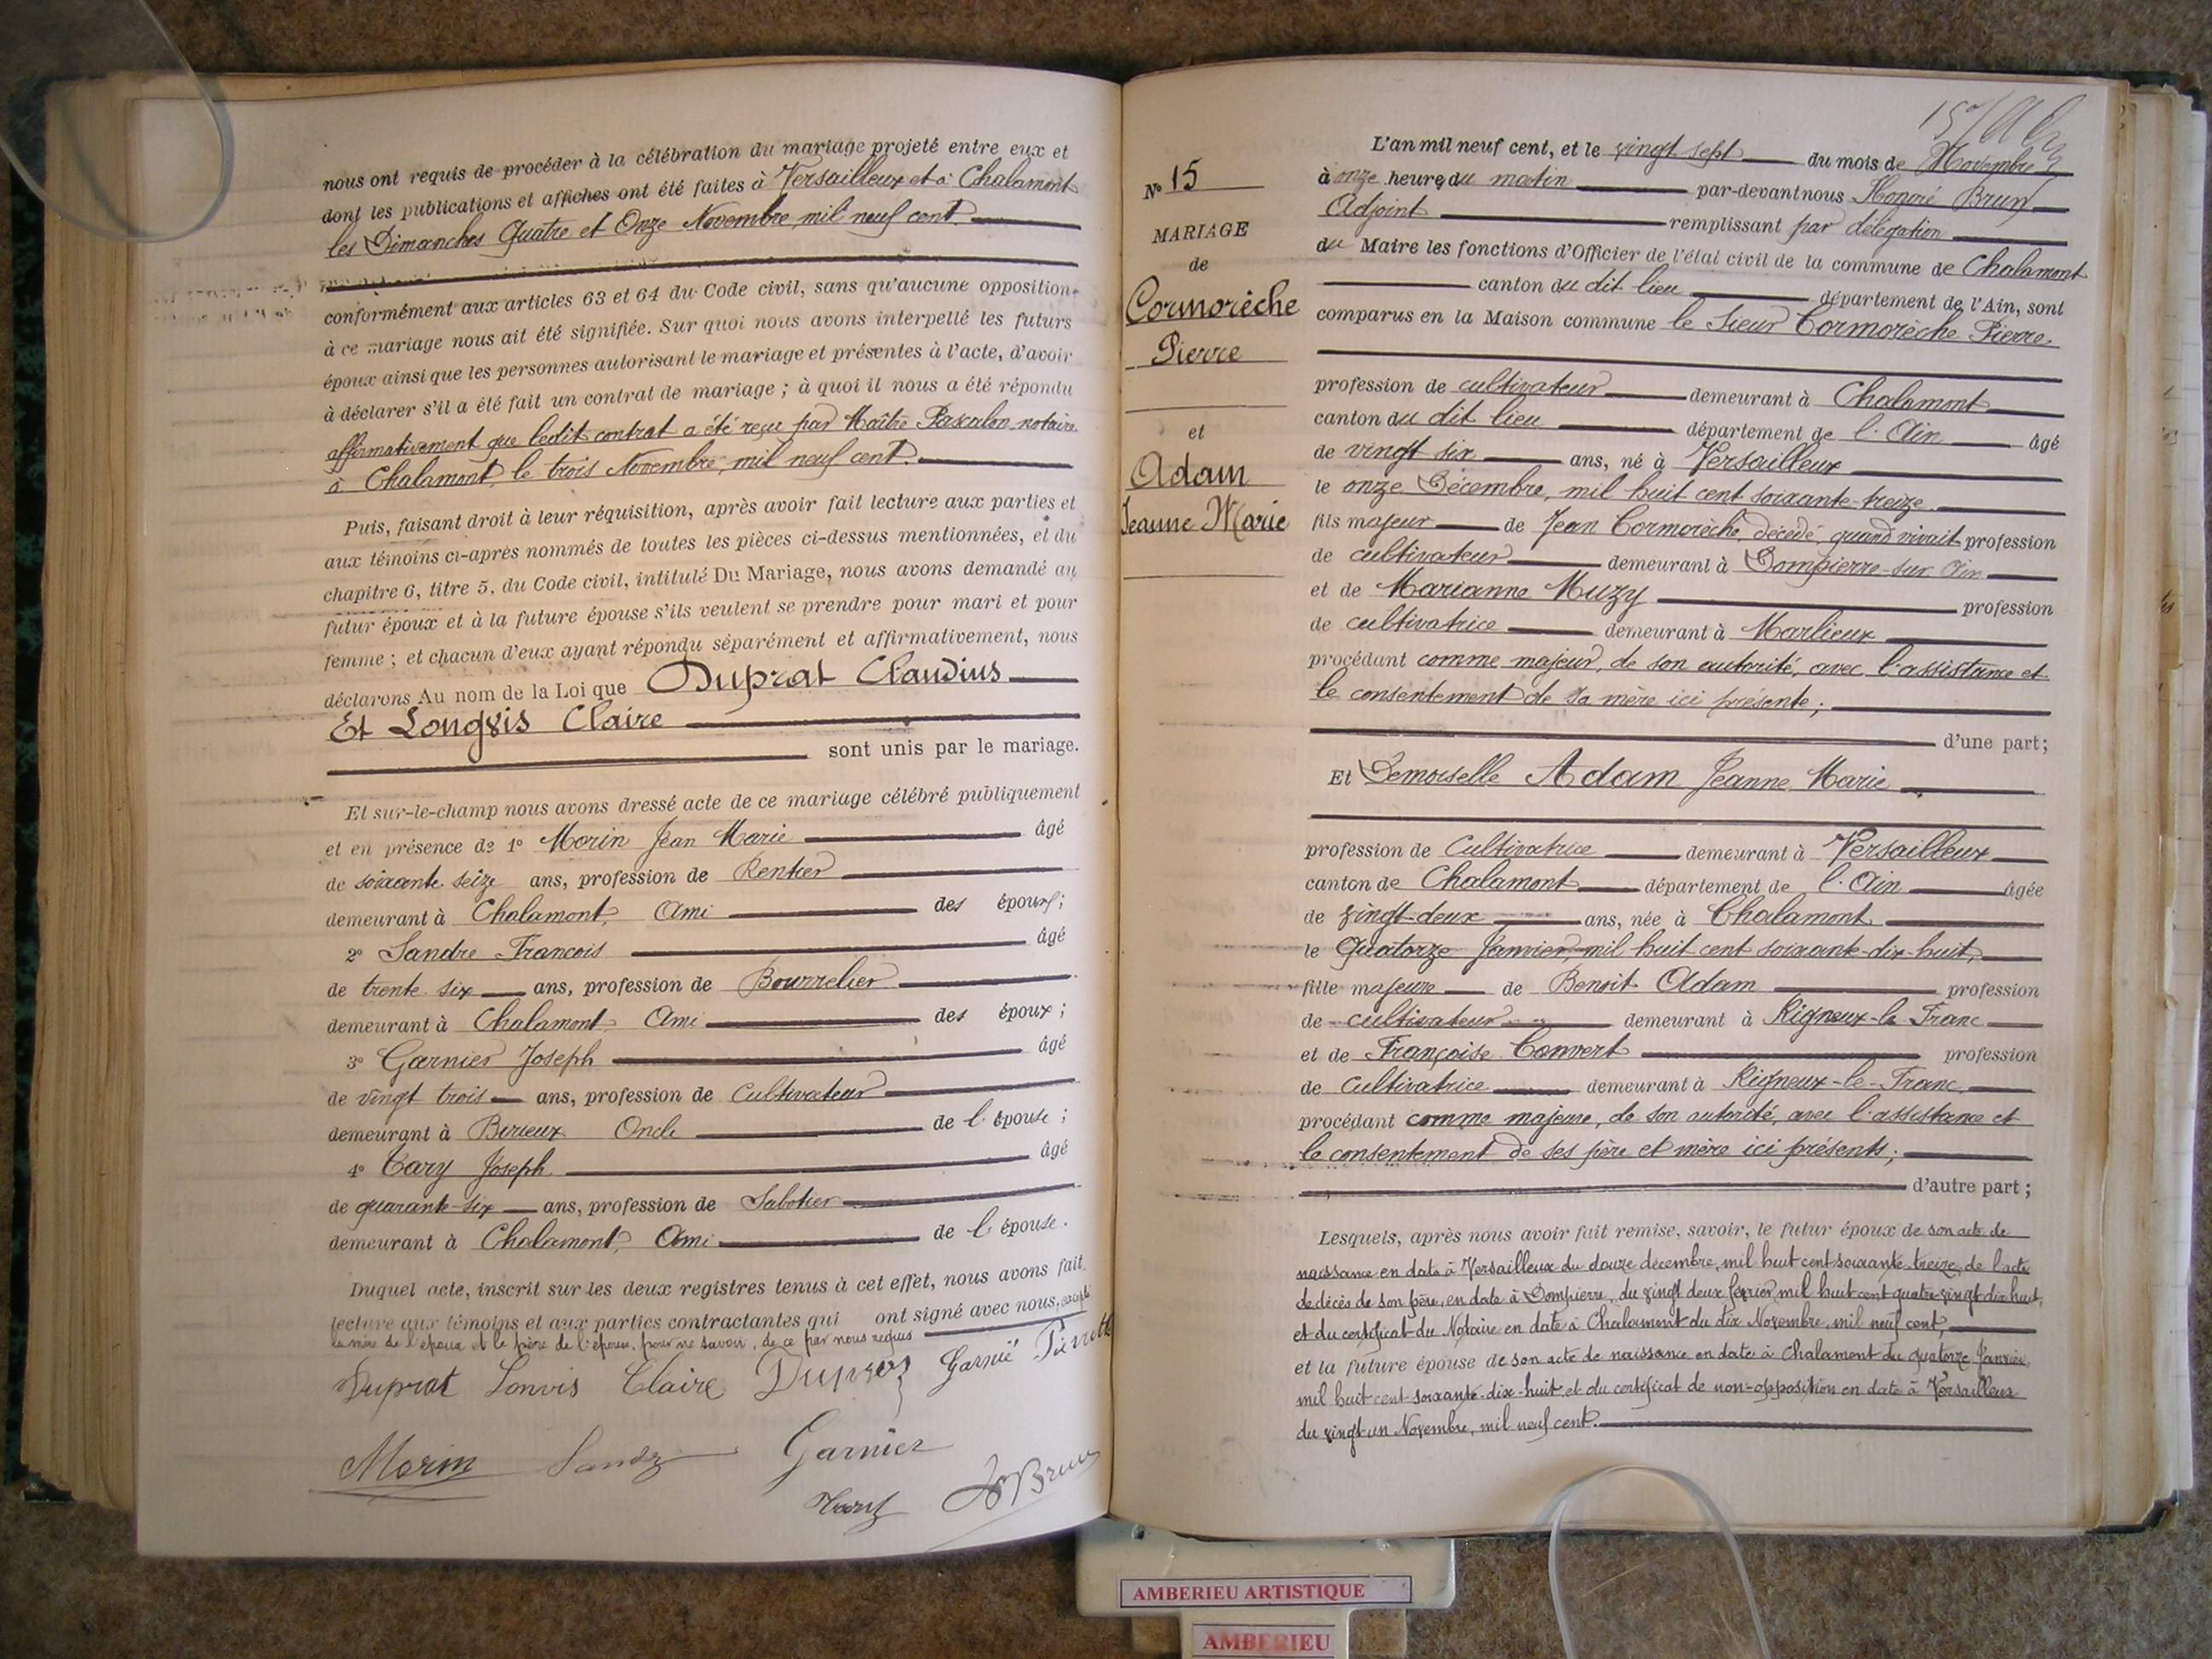 nous ont requis de procéder à la célébration du mariage projeté entre eux et
dont les publications et affiches ont été faites à Versailleux et à Chalamont
les Dimanches Quatre et Onze Novembre mil neuf cent.
conformément aux articles 63 et 64 du Code civil, sans qu'aucune opposition
à ce mariage nous ait été signifiée. Sur quoi nous avons interpellé les futurs
époux ainsi que les personnes autorisant le mariage et présentes à l'acte, d'avoir
à déclarer s'il a été fait un contrat de mariage ; à quoi il nous a été répondu
affirmativement que ledit contrat a été reçu par Maître Pascalon notaire
à Chalamont, le trois Novembre, mil neuf cent.
Puis, faisant droit à leur réquisition, après avoir fait lecture aux parties et
aux témoins ci-après nommés de toutes les pièces ci-dessus mentionnées, et du
chapitre 6, titre 5, du Code civil, intitulé Du Mariage, nous avons demandé au
futur époux et à la future épouse s'ils veulent se prendre pour mari et pour
femme ; et chacun d'eux ayant répondu séparément et affirmativement, nous
déclarons Au nom de la Loi que Duprat Claudius
Et Longvis Claire
sont unis par le mariage.
Et sur-le-champ nous avons dressé acte de ce mariage célébré publiquement
et en présence de 1° Morin Jean Marie âgé
de soixante seize ans, profession de Rentier
demeurant à Chalamont, Ami des époux ;
2° Sandre François âgé
de trente six ans, profession de Bourrelier
demeurant à Chalamont, Ami des époux ;
3° Garnier Joseph âgé
de vingt trois ans, profession de Cultivateur
demeurant à Birieux Oncle de l'épouse ;
4° Tary Joseph âgé
de quarante-six ans, profession de Sabotier
demeurant à Chalamont, Ami de l'épouse.
Duquel acte, inscrit sur les deux registres tenus à cet effet, nous avons fait
lecture aux témoins et aux parties contractantes qui ont signé avec nous, excepté
la mère de l'époux et le père de l'épouse, pour ne savoir, de ce par nous requis
Duprat Lonvis Claire Garnié
Morin Garnier
Brun
N° 15
MARIAGE
de
Cormorèche
Pierre
et
Adam
Jeanne Marie
L'an mil neuf cent, et le vingt sept du mois de Novembre
à onze heures du matin par-devant nous Honoré Brun
Adjoint remplissant par délégation
du Maire les fonctions d'Officier de l'état civil de la commune de Chalamont
canton du dit lieu département de l'Ain, sont
comparus en la Maison commune le Sieur Cormorèche Pierre.
profession de cultivateur demeurant à Chalamont
canton du dit lieu département de l'Ain âgé
de vingt six ans, né à Versailleux
le onze Décembre, mil huit cent soixante-treize
fils majeur de Jean Cormorèche, décédé, quand vivait profession
de cultivateur demeurant à Dompierre-sur-Ain
et de Marianne Muzy profession
de cultivatrice demeurant à Marlieux
procédant comme majeur, de son autorité, avec l'assistance et
le consentement de sa mère ici présente ;
d'une part ;
Et Demoiselle Adam Jeanne Marie
profession de Cultivatrice demeurant à Versailleux
canton de Chalamont département de l'Ain âgée
de vingt-deux ans, née à Chalamont
le Quatorze Janvier, mil huit cent soixante-dix-huit,
fille majeure de Benoit Adam profession
de cultivateur demeurant à Rigneux-le-Franc
et de Françoise Convert profession
de Cultivatrice demeurant à Rigneux-le-Franc
procédant comme majeure, de son autorité, avec l'assistance et
le consentement de ses père et mère ici présents ;
d'autre part ;
Lesquels, après nous avoir fait remise, savoir, le futur époux de son acte de
naissance en date à Versailleux du douze décembre, mil huit cent soixante-treize, de l'acte
de décès de son père, en date à Dompierre, du vingt deux février mil huit cent quatre-vingt-dix huit,
et du certificat du Notaire en date à Chalamont du dix Novembre, mil neuf cent,
et la future épouse de son acte de naissance en date à Chalamont du quatorze Janvier,
mil huit cent soixante-dix-huit et du certificat de non-opposition en date à Versailleux
du vingt-un Novembre, mil neuf cent.
AMBERIEU ARTISTIQUE
AMBERIEU